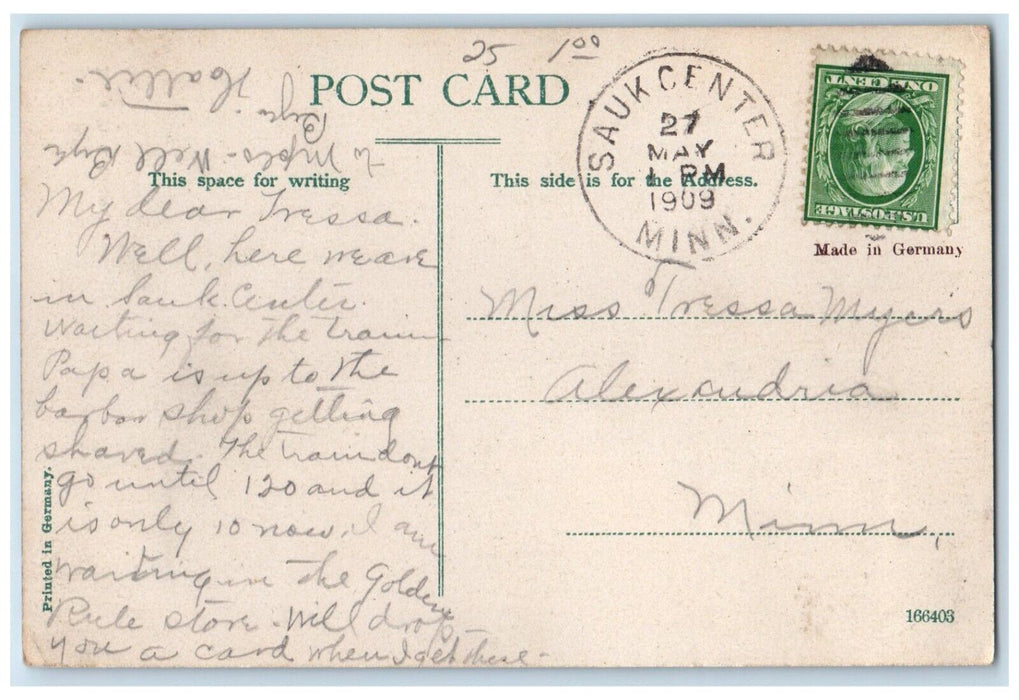 25 1.00
POST CARD
This space for writing
This side is for the Address.
SAUK CENTER
27
MAY
1 PM
1909
MINN.
ONE CENT
U.S. POSTAGE
Made in Germany
My dear Tressa.
Well, here we are
in Sauk Center.
Waiting for the train
Papa is up to the
barbar shop getting
shaved. The train dont
go until 120 and it
is only 10 now. I am
waiting in the Golden
Rule store. Will drop
you a card when I get these-
to Mpls. Well Bye
Bye
Hattie.
Miss Tressa Myers
Alexandria
Minn,
Printed in Germany.
166403